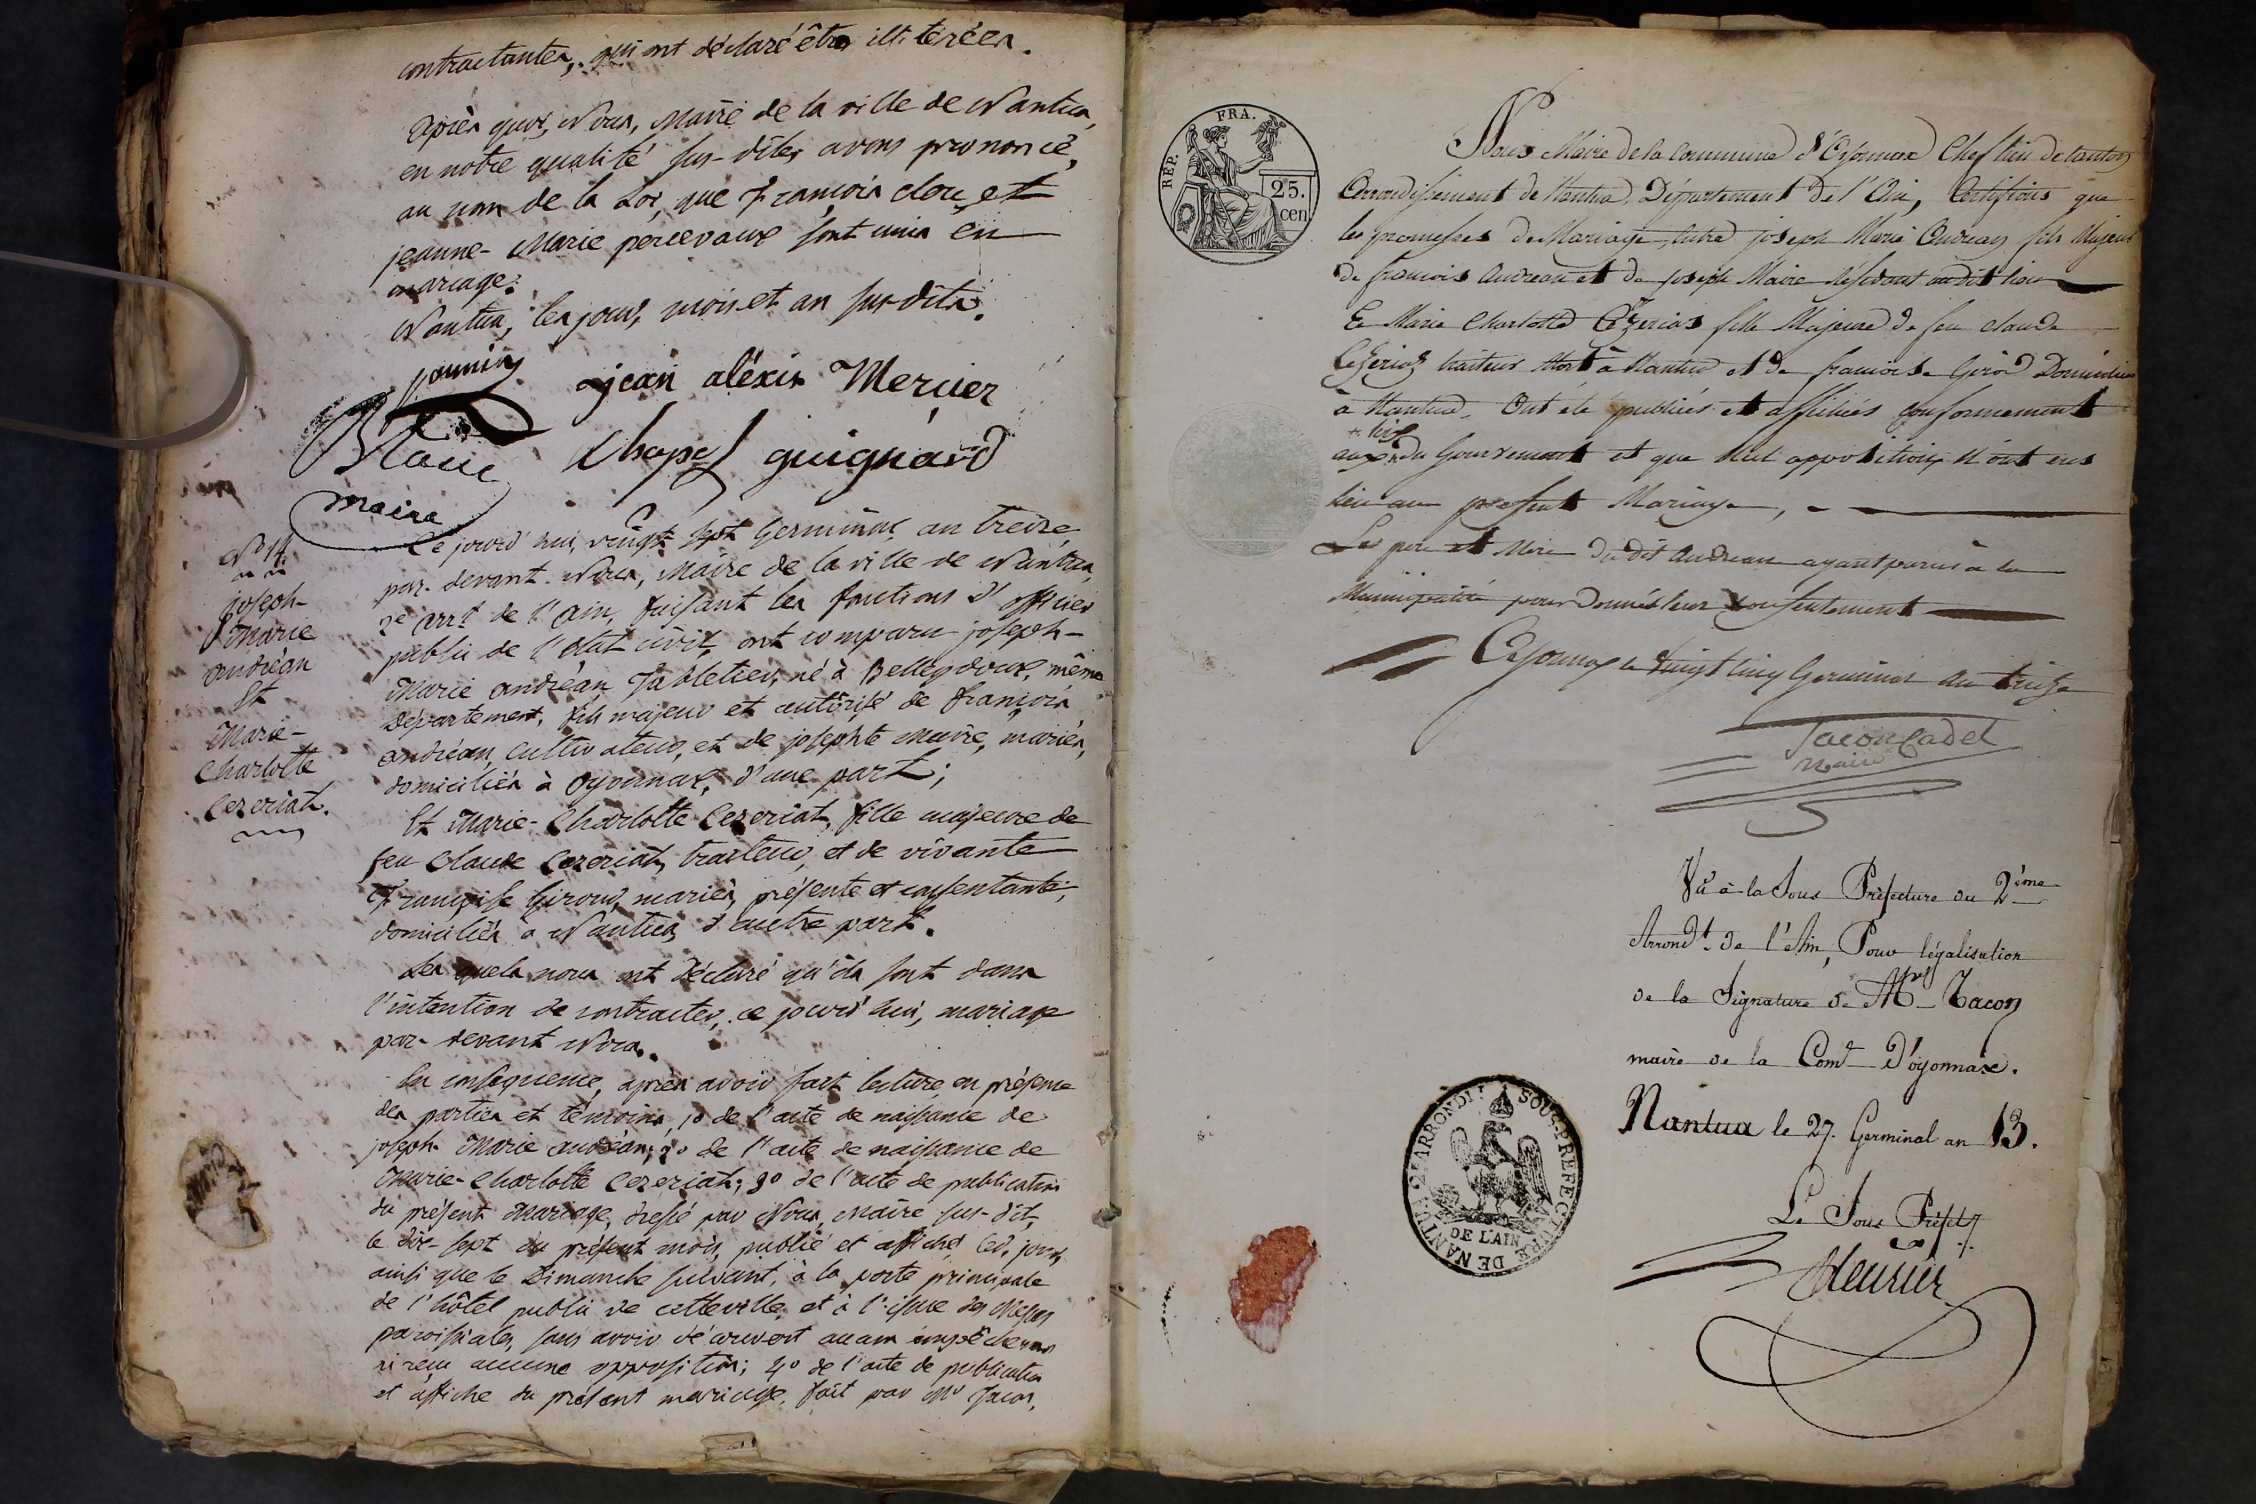 contractantes, qui ont déclaré être illitérées.
après quoi, Nous, Maire de la ville de Nantua,
en notre qualité sus-dite, avons prononcé,
au nom de la Loi, que François clerc et
jeanne-Marie percevaux sont unis en
mariage.
Nantua, les jour, mois et an sus-dits.
jean aléxis Mercier
Chapel guignard
maire
Ce jourd'hui, vingt sept Germinal, an treize,
par-devant Nous, Maire de la ville de Nantua,
2e arrt de l'Ain, faisant les fonctions d'officier
public de l'état civil, ont comparu joseph-
Marie andréan, Tabletier, né à Bellegdoux, même
département, fils majeur et autorisé de françois
andréan, cultivateur, et de josephte maire, mariés,
domiciliés à oyonnax, d'une part;
Et Marie-Charlotte Cezeriat, fille majeure de
feu Claude Cezeriat, traiteur, et de vivante
Françoise Giroud, mariés, présente et consentante,
domiciliés à Nantua, d'autre part.
Les quels nous ont déclaré qu'ils sont dans
l'intention de contracter, ce jourd'hui, mariage
par-devant Nous.
En conséquence, après avoir fait lecture, en présence
des parties et témoins, 1o de l'acte de naissance de
joseph-Marie andréan; 2o de l'acte de naissance de
Marie-Charlotte Cezeriat; 3o de l'acte de publication
du présent Mariage, dressé par Nous, Maire sus-dit,
le dix-sept du présent mois, publié et affiché led. jour,
ainsi que le Dimanche suivant, à la porte principale
de l'hôtel public de cette ville et à l'issue des Messes
paroissiales, sans avoir découvert aucun empêchement
ni reçu aucune opposition; 4o de l'acte de publication
et affiche du présent mariage, fait par Mr Tacon,
No 14.
joseph-
Marie
andréan
Et
Marie-
Charlotte
Cezeriat.
REP. FRA.
25.
cen
Nous Maire de la Commune d'Oyonnax Chef lieu de Canton
Arrondissement de Nantua Département de l'Ain, Certifions que
les promesses de Mariage, entre joseph Marie Andrean fils Majeur
de francois Andrean et de Joseph Maire Résidant audit lieu
Et Marie Charlotte Cézeriat fille Majeure de feu claude
Cezeriat traiteur Mort à Nantua et de francoise Girod Domiciliée
à Nantua. Ont été publiés et affichés conformement
aux lois du Gouvernement et que Nul opposition N'ont eus
lieu au present Mariage,
Les pere et Mere du dit Andrean ayant parus à la
Municipalité pour donner leur Consentement
Oyonnax le Vingt Cinq Germinal an treize
Tacon Cadet
Maire
Vu à la Sous Préfecture du 2ème
Arrondt. de l'Ain, Pour légalisation
de la Signature de Mr Tacon
maire de la Come D'oyonnaxe.
Nantua le 27. Germinal an 13.
Le Sous Préfet
SOUS-PREFECTURE DE NANTUA 2e ARRONDI.
DE L'AIN